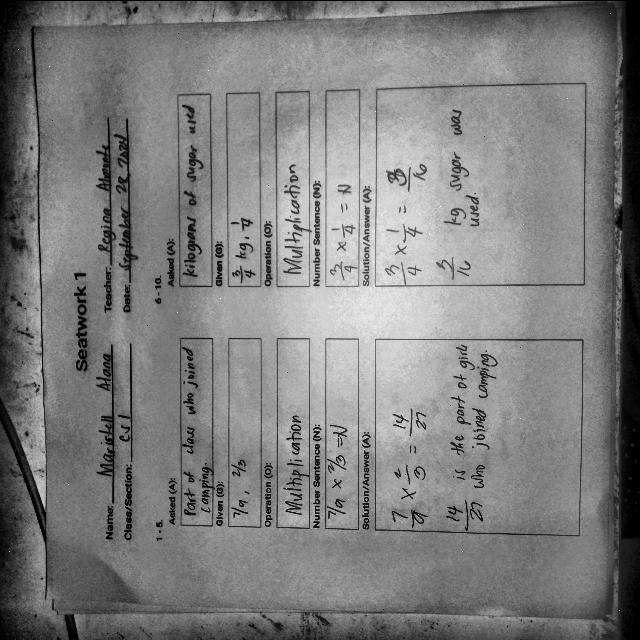 Seatwork 1
Name: Alana
Teacher: Regine
Class/Section: CS1
Date: September 28
1 - 5.
Asked (A):
Part of class who joined
camping.
Given (G):
7/9, 2/3
Operation (O):
Multiplication
Number Sentence (N):
7/9 x 2/3 = N
Solution/Answer (A):
7/9 x 2/3 = 14/27
14/27 is the part of girls
who joined camping.
6 - 10.
Asked (A):
kilograms of sugar used
Given (G):
3/4 kg, 1/4
Operation (O):
Multiplication
Number Sentence (N):
3/4 x 1/4 = N
Solution/Answer (A):
3/4 x 1/4 = 3/16
3/16 kg sugar was
used